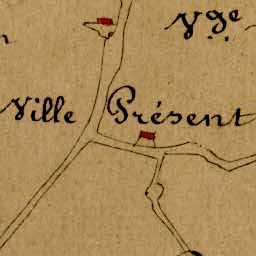 Yge
Ville Présent